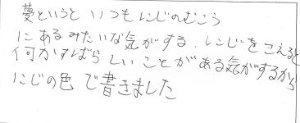 夢というと いつもにじのむこう
にあるみたいな気がする。にじをこえると
何かすばらしいことがある気がするから
にじの色で書きました